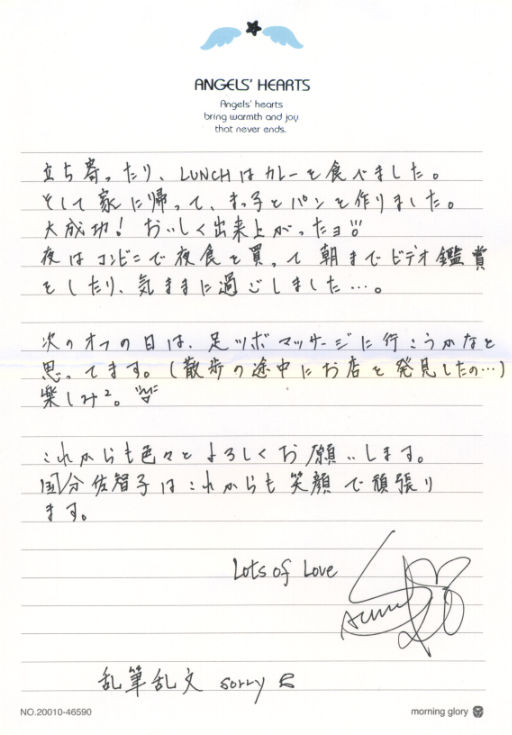 ANGELS' HEARTS
Angels' hearts
bring warmth and joy
that never ends.
立ち寄ったり、LUNCHはカレーを食べました。
そして家に帰って、まっ子とパンを作りました。
大成功! おいしく出来上がったョ!!
夜はコンビニで夜食を買って朝までビデオ鑑賞
をしたり、気ままに過ごしました…。
次のオフの日は、足ツボマッサージに行こうかなと
思ってます。(散歩の途中にお店を発見したの…)
楽しみ²。
これからも色々とよろしくお願いします。
国分佐智子はこれからも笑顔で頑張り
ます。
Lots of Love
乱筆乱文 sorry
NO.20010-46590
morning glory